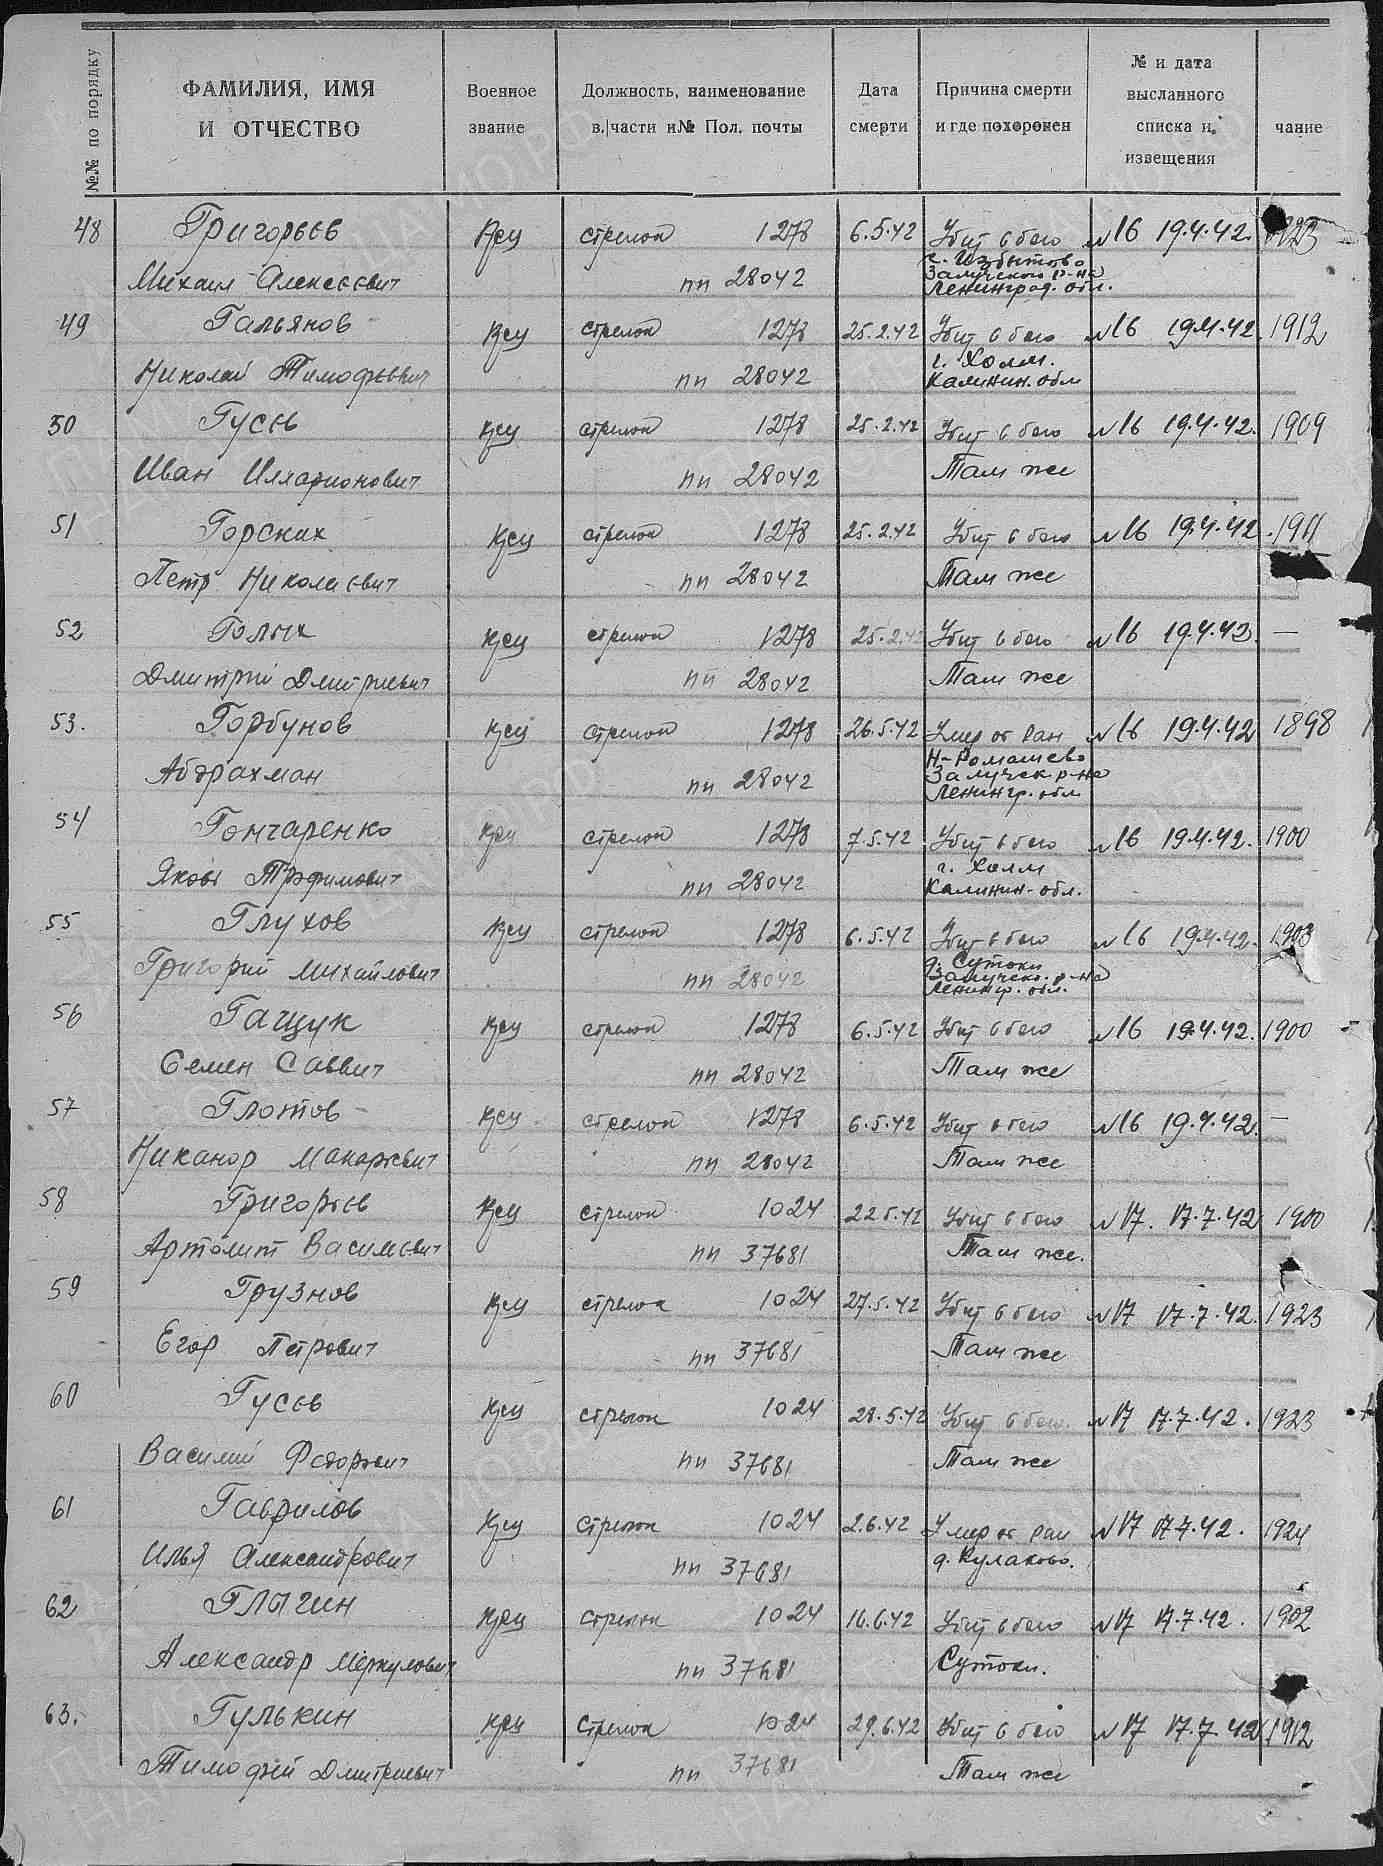 №№ по порядку
ФАМИЛИЯ, ИМЯ И ОТЧЕСТВО
Военное звание
Должность, наименование в. части и № Пол. почты
Дата смерти
Причина смерти и где похоронен
№ и дата высланного списка и извещения
чание
48 Григорьев Крсц стрелок 1278 6.5.42 Убит в бою №16 19.4.42.
Михаил Алексеевич пп 28042
Залучского р-на
Ленинград. обл.
49 Гальянов Крсц стрелок 1278 25.2.42 Убит в бою №16 19.4.42. 1912
Николай Тимофеевич пп 28042 г. Холм.
Калинин. обл
50 Гусев Крсц стрелок 1278 25.2.42 Убит в бою №16 19.4.42. 1909
Иван Илларионович пп 28042 Там же
51 Горских Крсц стрелок 1278 25.2.42 Убит в бою №16 19.4.42. 1911
Петр Николаевич пп 28042 Там же
52 Голых Крсц стрелок 1278 25.2.42 Убит в бою №16 19.4.43. —
Дмитрий Дмитриевич пп 28042 Там же
53. Горбунов Крсц стрелок 1278 26.5.42 Умер от ран №16 19.4.42 1898
Абдрахман пп 28042 Н-Ромашево
Залучск р-на
Ленингр. обл
54 Гончаренко Крсц стрелок 1278 7.5.42 Убит в бою №16 19.4.42. 1900
Яков Трофимович пп 28042 г. Холм
Калинин. обл.
55 Глухов Крсц стрелок 1278 6.5.42 Убит в бою №16 19.4.42. 1903
Григорий Михайлович пп 28042 д. Сутоки
Залучско. р-на
Ленингр. обл.
56 Гащук Крсц стрелок 1278 6.5.42 Убит в бою №16 19.4.42. 1900
Семен Саввич пп 28042 Там же
57 Глотов Крсц стрелок 1278 6.5.42 Убит в бою №16 19.4.42. —
Никанор Макарович пп 28042 Там же
58 Григорьев Крсц стрелок 1024 22.5.42 Убит в бою №17. 17.7.42 1900
Васильевич пп 37681 Там же.
59 Грузнов Крсц стрелок 1024 27.5.42 Убит в бою №17 17.7.42. 1923
Егор Петрович пп 37681 Там же
60 Гусев Крсц стрелок 1024 28.5.42 Убит в бою. №17 17.7.42. 1923
Василий Федорович пп 37681 Там же
61 Гаврилов Крсц стрелок 1024 2.6.42 Умер от ран №17 17.7.42. 1924
Илья Александрович пп 37681 д. Кулаково.
62 Глыгин Крсц стрелок 1024 16.6.42 Убит в бою №17 17.7.42. 1902
Александр Меркулович пп 37681 Сутоки.
63. Гулькин Крсц стрелок 1024 29.6.42 Убит в бою №17 17.7.42 1912
Тимофей Дмитриевич пп 37681 Там же